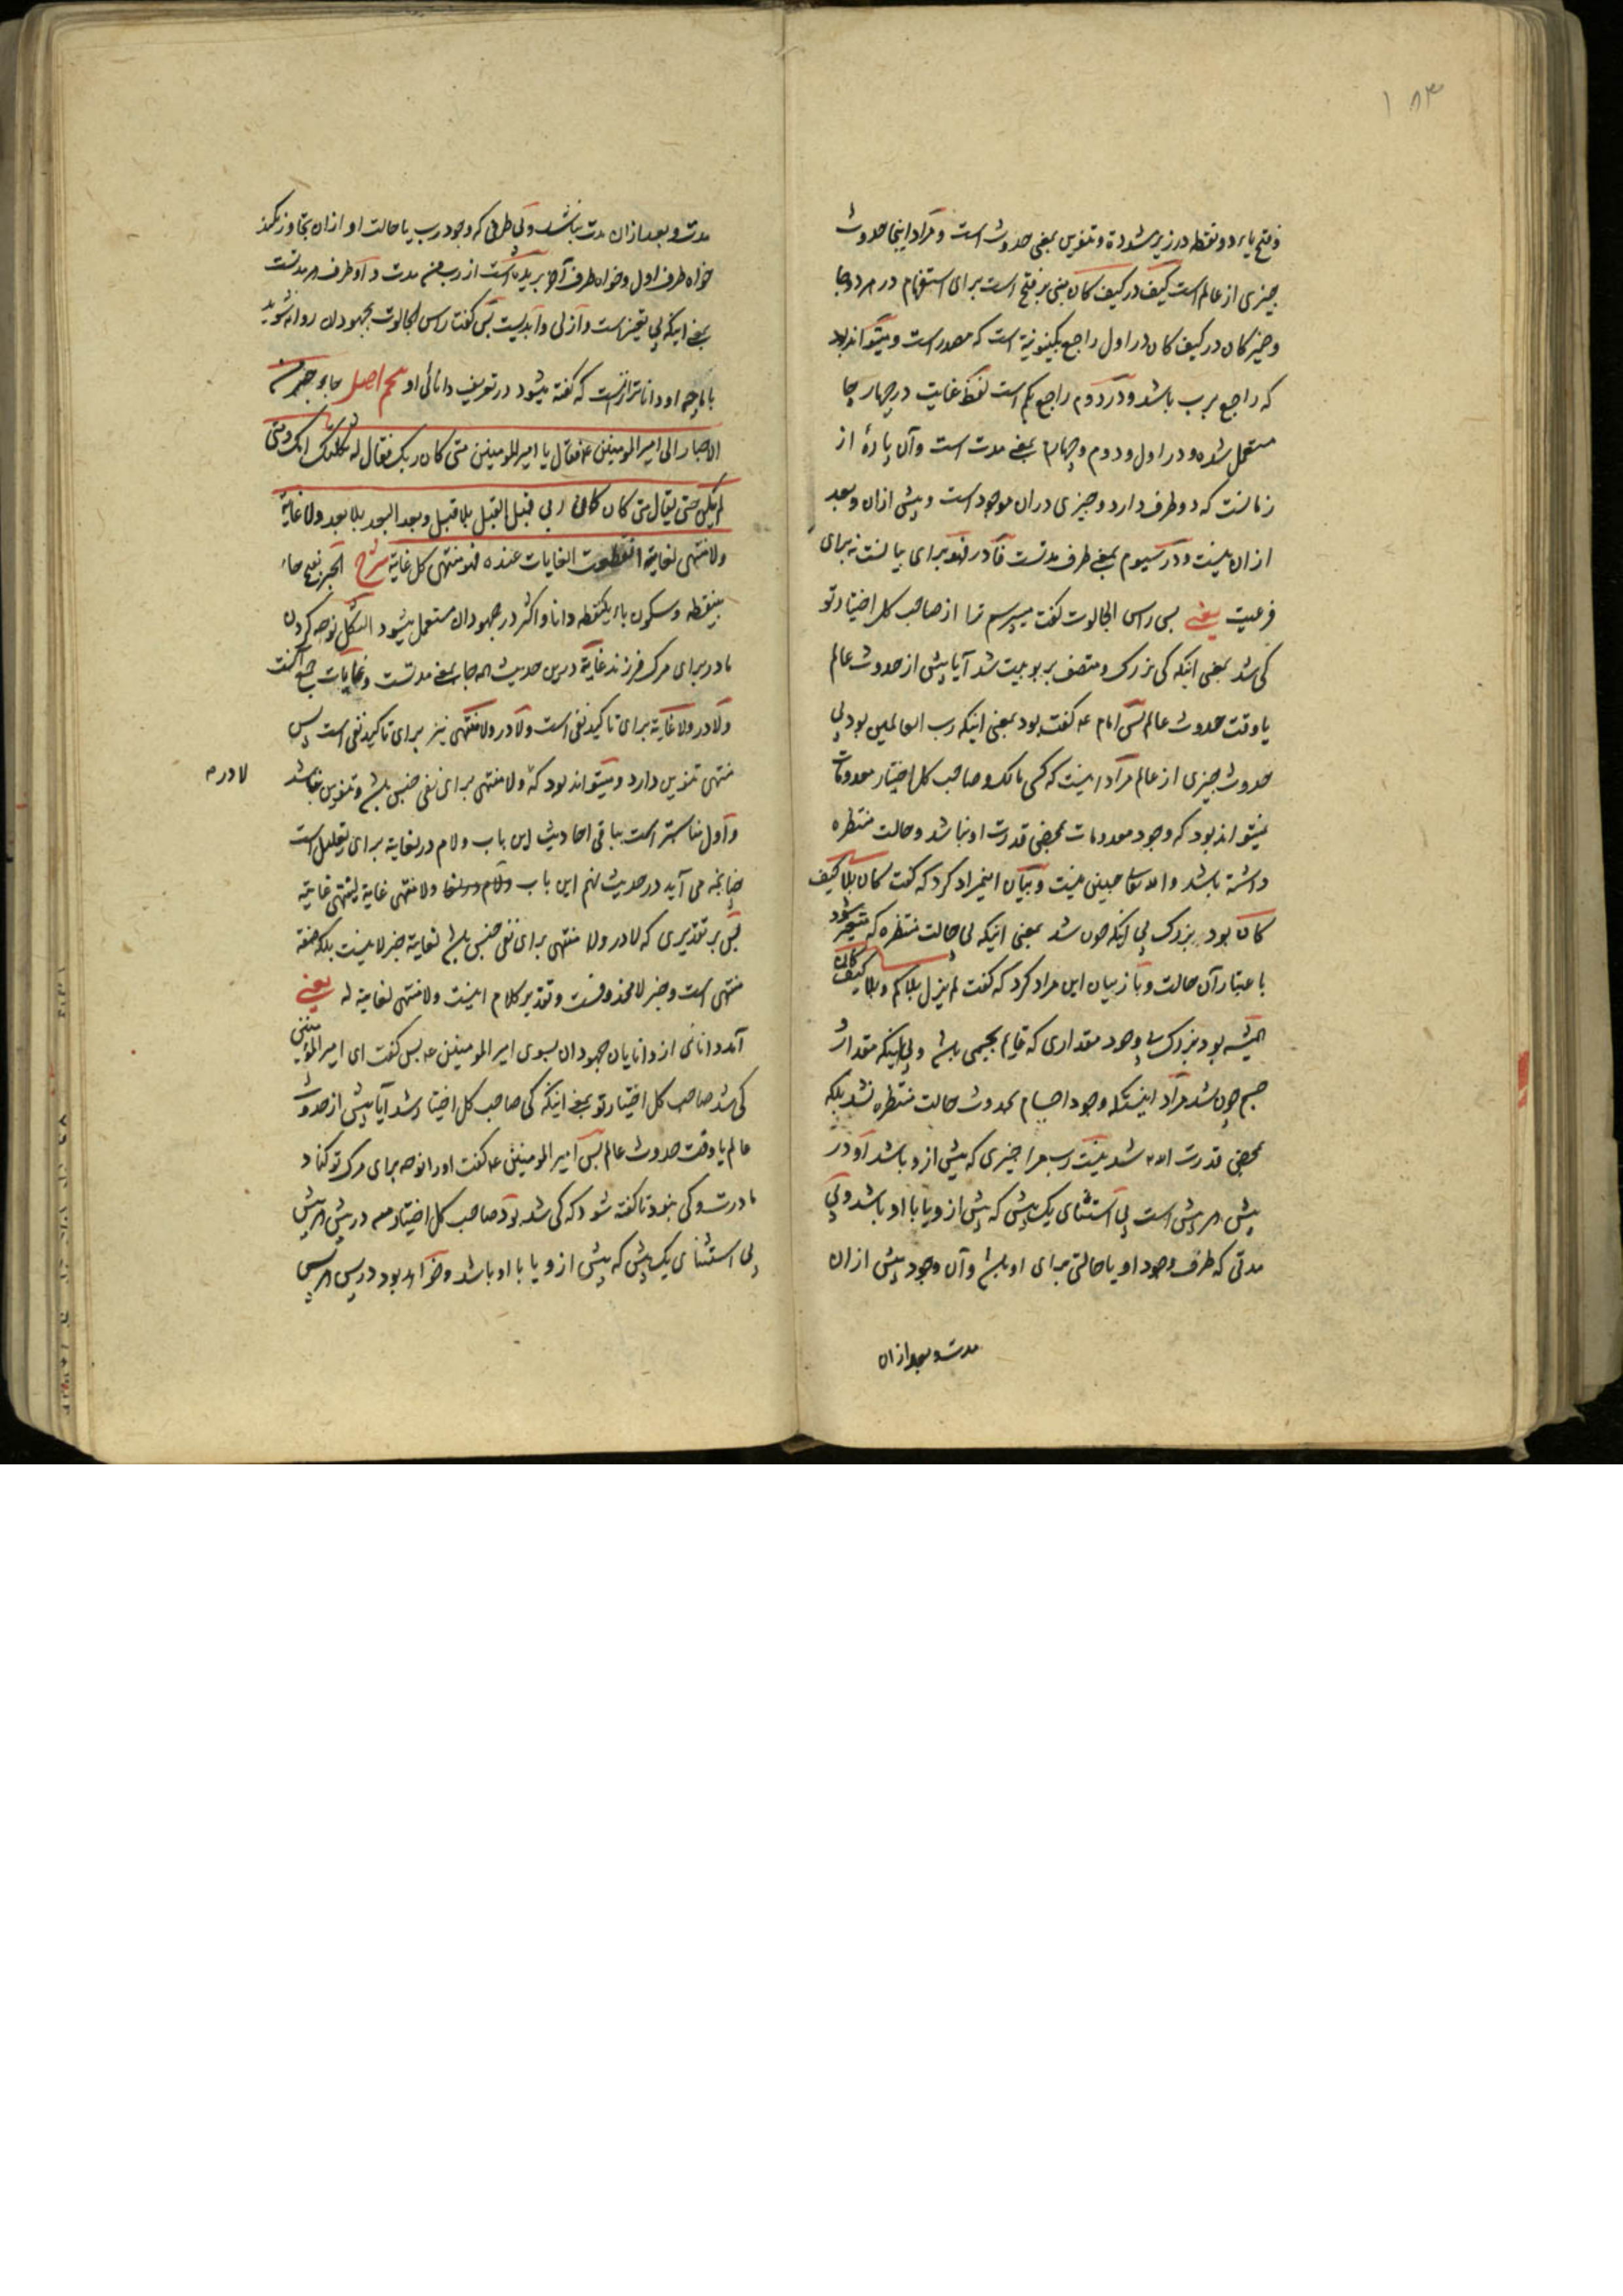 ۱۸۳
و فتح یاء دو نقطه در زیر مشدده و تنوین بمعنی حدوث است و مراد اینجا حدوث
چیزی از عالم است کیف در کیف کان مبنی بر فتح است برای استفهام در هر دو جا
و ضمیر کان در کیف کان در اول راجع بکینونیة است که مصدر است و میتواند بود
که راجع برب باشد و در دوم راجع بکم است لفظ غایت در چهار جا
مستعمل شده و در اول و دوم و چهارم بمعنی مدت است و آن پارهٔ از
زمانست که دو طرف دارد و چیزی در آن موجود است و پیش ازان و بعد
ازان نیست و در سیوم بمعنی طرف مدتست فا در فهو برای بیانست نه برای
فرعیت یعنی پس راس الجالوت گفت میپرسم ترا از صاحب کل اختیار تو
کی شد بمعنی اینکه کی بزرک و متصف بربوبیت شد آیا پیش از حدوث عالم
یا وقت حدوث عالم پس امام ع گفت بود بمعنی اینکه رب العالمین بود بی
حدوث چیزی از عالم مراد اینست که کسی مالک و صاحب کل اختیار معدومات
نمیتواند بود که وجود معدومات بمحض قدرت او نباشد و حالت منتظره
داشته باشد و الله تعالی چنین نیست و بیان اینمراد کرد که گفت کان بلا کیف
کان بود بزرک بی اینکه چون شد بمعنی اینکه بی حالت منتظره که متغیر شود
باعتبار آن حالت و باز بیان این مراد کرد که گفت لم یزل بلا کم و بلا کیف کان
همیشه بود بزرک بی وجود مقداری که قایم بجسمی باشد و بی اینکه مقدار
جسم چون شد مراد اینستکه وجود اجسام بحدوث حالت منتظره نشد بلکه
بمحض قدرت الله شد نیست رب مرا چیزی که پیش ازو باشد او در
پیش هر پیش است بی استثنای یک پیش که پیش ازو یا با او باشد و بی
مدتی که ظرف وجود او یا حالتی برای او باشد و آن وجود پیش ازان
مدت و بعد ازان
مدت و بعد ازان مدت نباشد و بی طرفی که وجود رب یا حالت او ازان تجاوز نکند
خواه طرف اول و خواه طرف آخر بریده است از رب من مدت و او طرف هر مدتست
بمعنی اینکه بی تغیر است و ازلی و ابدیست پس گفت راس الجالوت بجهودان روانه شوید
با ما چه او داناتر ازانست که گفته میشود در تعریف دانائی او اصل جاء حبر من
الاحبار الی امیر المومنین ع فقال یا امیر المومنین متی کان ربک فقال له ثکلتک امک و متی
لم یکن حتی یقال متی کان کان ربی قبل القبل بلا قبل و بعد البعد بلا بعد ولا غایة
ولا منتهی لغایته انقطعت الغایات عنده فهو منتهی کل غایة شرح الحبر بفتح حاء
بینقطه و سکون باء یکنقطه دانا و اکثر در جهودان مستعمل میشود الثکل نوحه کردن
مادر برای مرک فرزند غایة درین حدیث همه جا بمعنی مدتست و غایات جمع آنست
و لا در ولا غایة برای تاکید نفی است و لا در ولا منتهی نیز برای تاکید نفی است پس
منتهی تنوین دارد و میتواند بود که ولا منتهی برای نفی جنس باشد و تنوین نباشد
لا در م
و اول مناسبتر است بباقی احادیث این باب و لام در لغایته برای تعلیل است
چنانچه می آید در حدیث نهم این باب ولا منتهی غایة لینتهی غایته
پس بر تقدیری که لا در ولا منتهی برای نفی جنس باشد لغایته خبر لا نیست بلکه صفة
منتهی است و خبر لا محذوفست و تقدیر کلام اینست ولا منتهی لغایته له یعنی
آمد دانائی از دانایان جهودان بسوی امیر المومنین ع پس گفت ای امیر المؤمنین
کی شد صاحب کل اختیار تو بمعنی اینکه کی صاحب کل اختیار شد آیا پیش از حدوث
عالم یا وقت حدوث عالم پس امیر المومنین ع گفت او را نوحه برای مرک تو کناد
مادرت و کی نبود تا گفته شود که کی شد بود صاحب کل اختیار من در پیش هر پیش
بی استثنای یک پیش که پیش ازو یا با او باشد و خواهد بود در پس هر پس